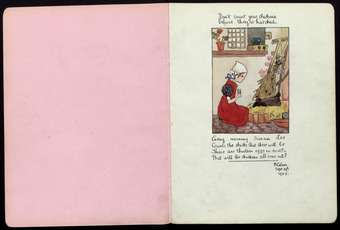 Don't count your chickens
before they're hatched.
Every morning Susan Lee
Counts the chicks that there will be
There are thirteen eggs in sight
But will the chickens all come out?
Sept